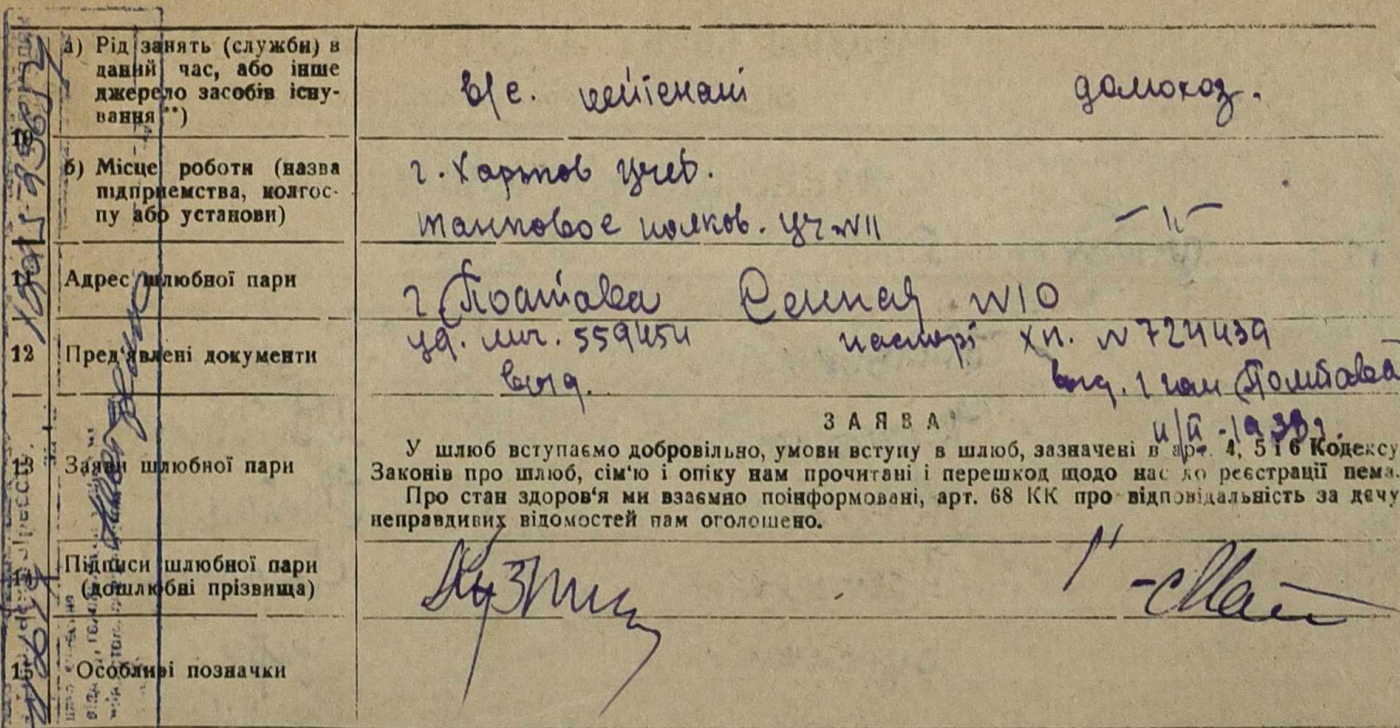 10 а) Рід занять (служби) в
даний час, або інше
джерело засобів існу-
вання**)
в/с. лейтенант домохоз.
б) Місце роботи (назва
підприємства, колгос-
пу або установи)
г. Харьков учеб.
танковое уч. №11 —"—
11 Адрес шлюбної пари
г Полтава Сенная №10
12 Пред'явлені документи
уд. лич. 559454 паспорт ХП. №724439
выд. выд. 1 гом Полтавой
1939г.
ЗАЯВА
13 Заяви шлюбної пари
У шлюб вступаємо добровільно, умови вступу в шлюб, зазначені в арт. 4, 5 і 6 Кодексу
Законів про шлюб, сім'ю і опіку нам прочитані і перешкод щодо нас до реєстрації нема.
Про стан здоров'я ми взаємно поінформовані, арт. 68 КК про відповідальність за дачу
неправдивих відомостей нам оголошено.
14 Підписи шлюбної пари
(дошлюбні прізвища)
15 Особливі позначки